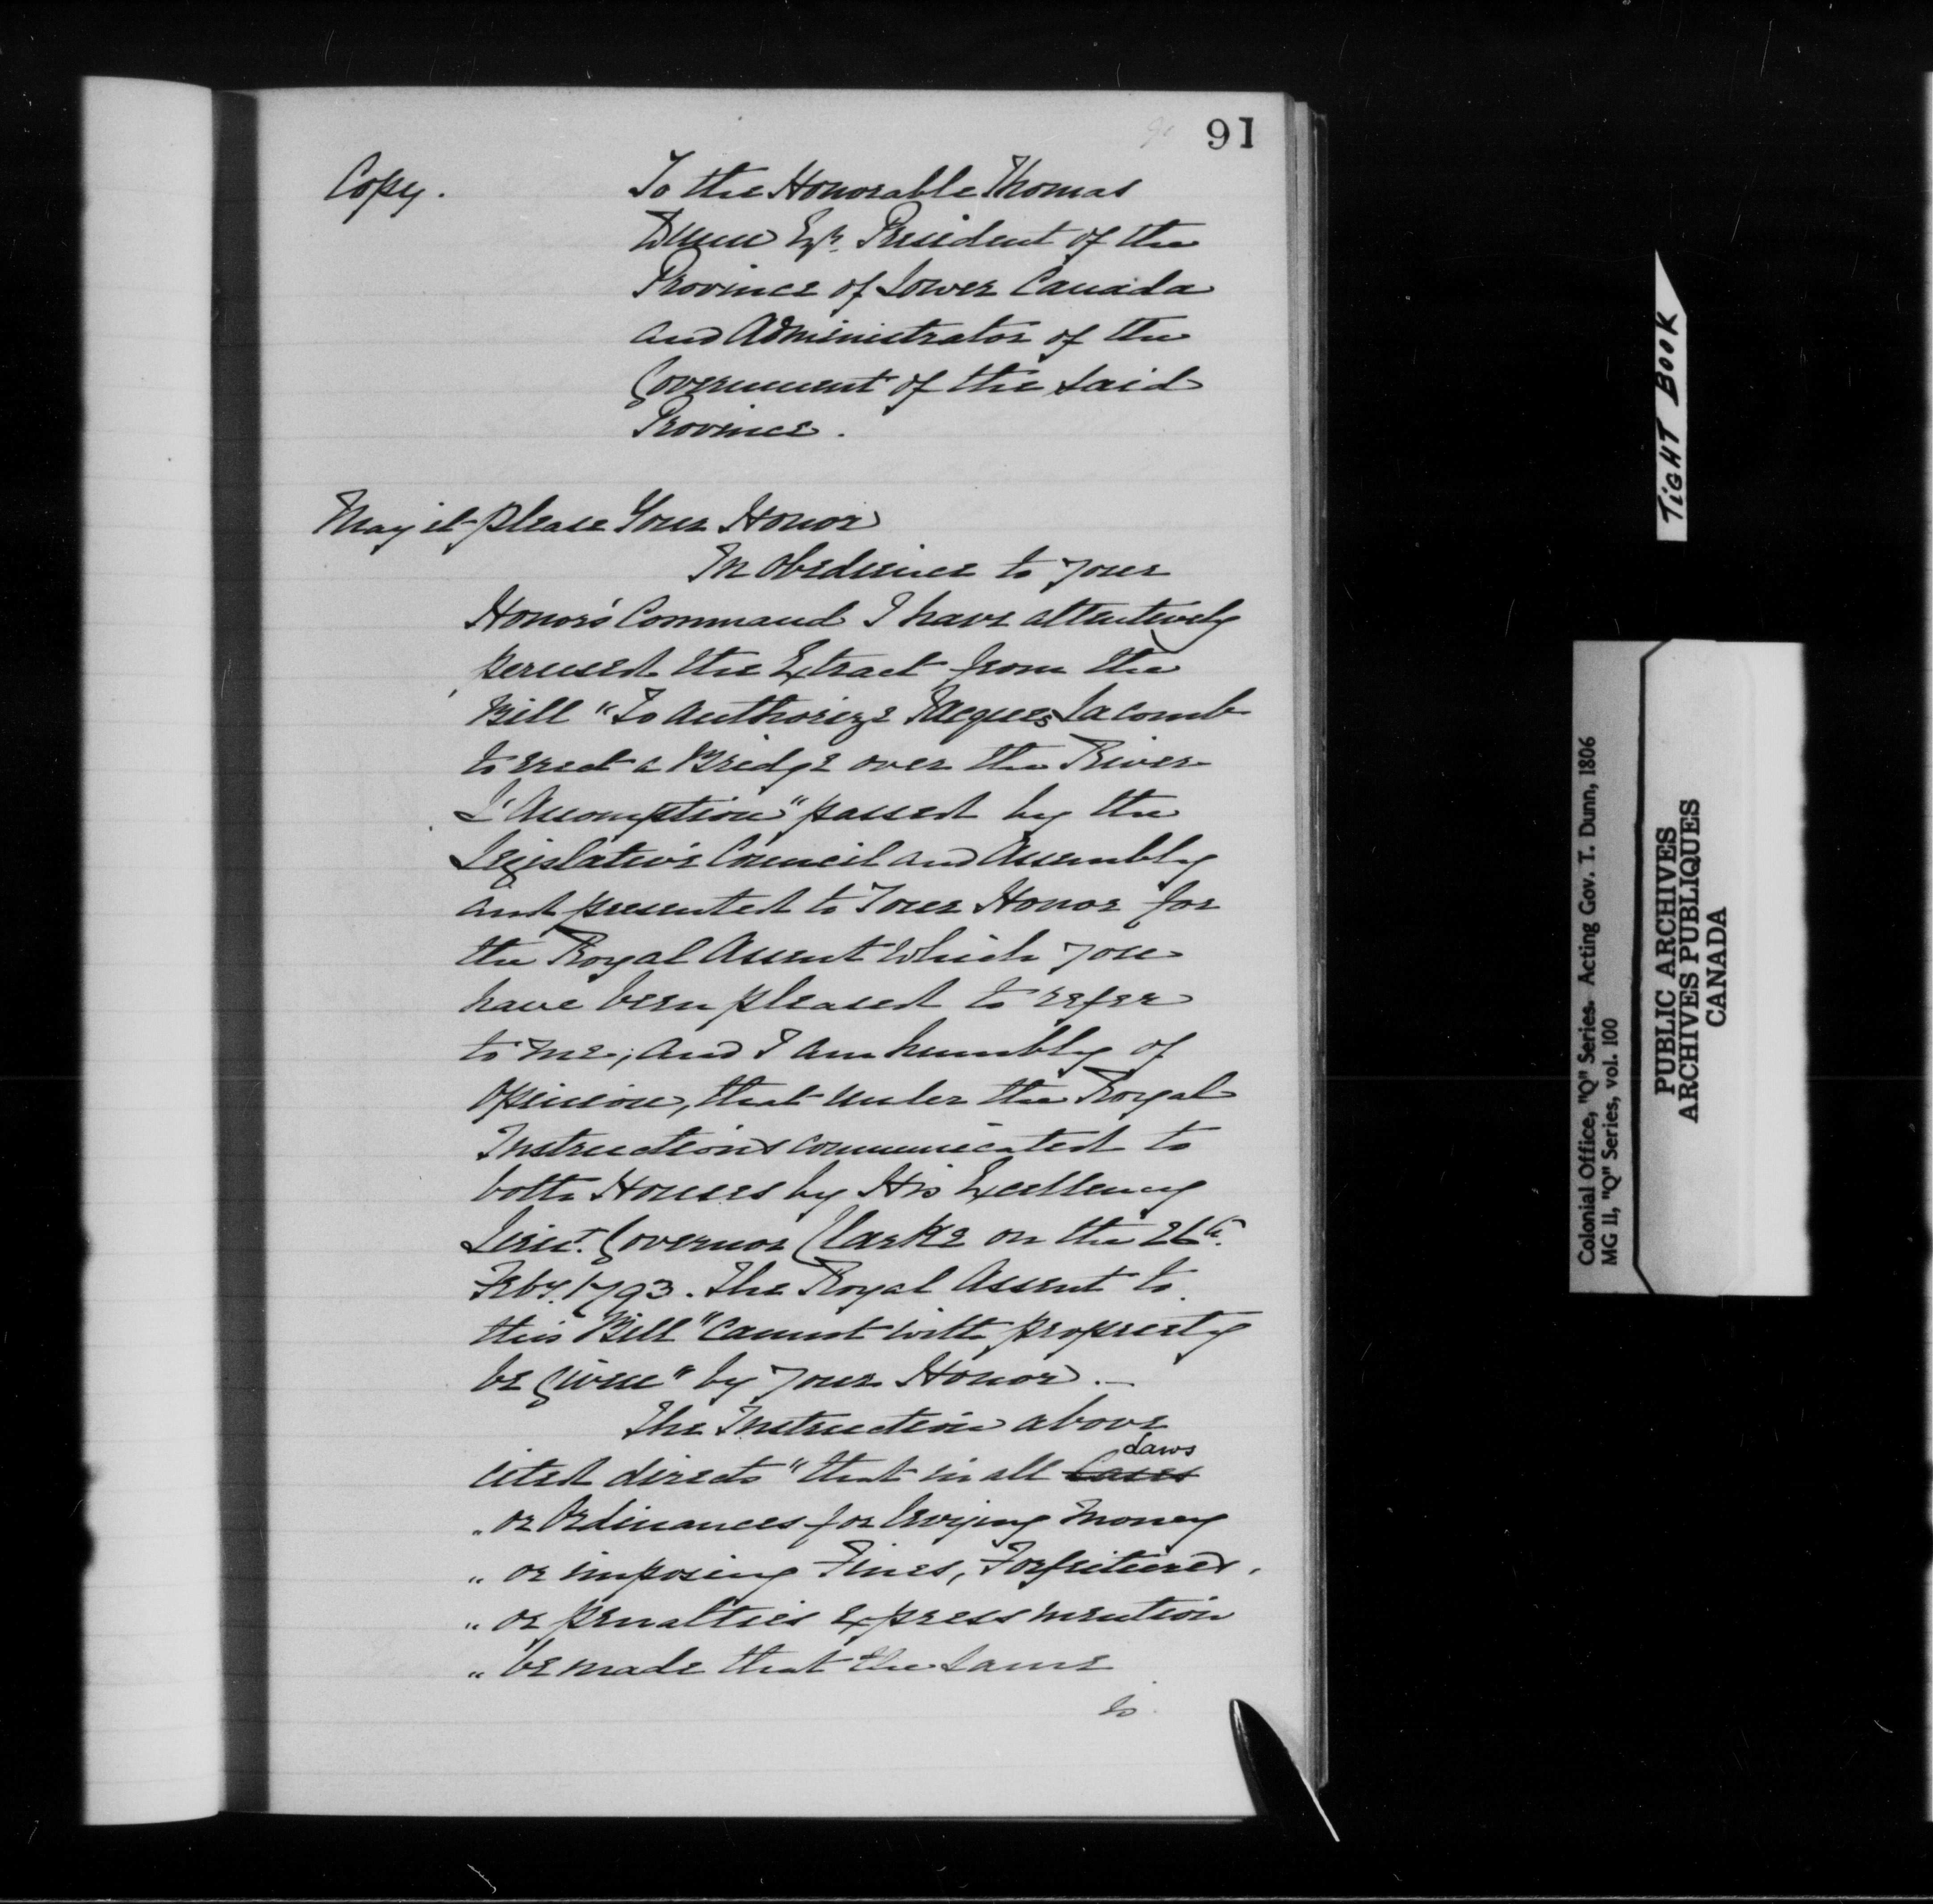 91
Copy.
To the Honorable Thomas
Dunn Esqr. President of the
Province of Lower Canada
and Administrator of the
Government of the said
Province.
May it please Your Honor
In obedience to your
Honors' Command I have attentively
perused the Extract from the
Bill "To authorize Jacques Lacomb
to erect a Bridge over the River
L'Assomption" passed by the
Legislative Council and Assembly
and presented to Your Honor for
the Royal Assent which you
have been pleased to refer
to me; and I am humbly of
opinion, that under the Royal
Instructions communicated to
both Houses by His Excellency
Lieut. Governor Clarke on the 26th.
Feby. 1793. The Royal Assent to
this Bill "cannot with propriety
be given" by your Honor.—
The Instruction above
Laws
cited directs "that in all Cases
" or Ordinances for levying money
" or imposing Fines, Forfeitures,
" or penalties express mention
" be made that the same
is
TIGHT BOOK
Colonial Office, "Q" Series. Acting Gov. T. Dunn, 1806
MG 11, "Q" Series, vol. 100
PUBLIC ARCHIVES
ARCHIVES PUBLIQUES
CANADA